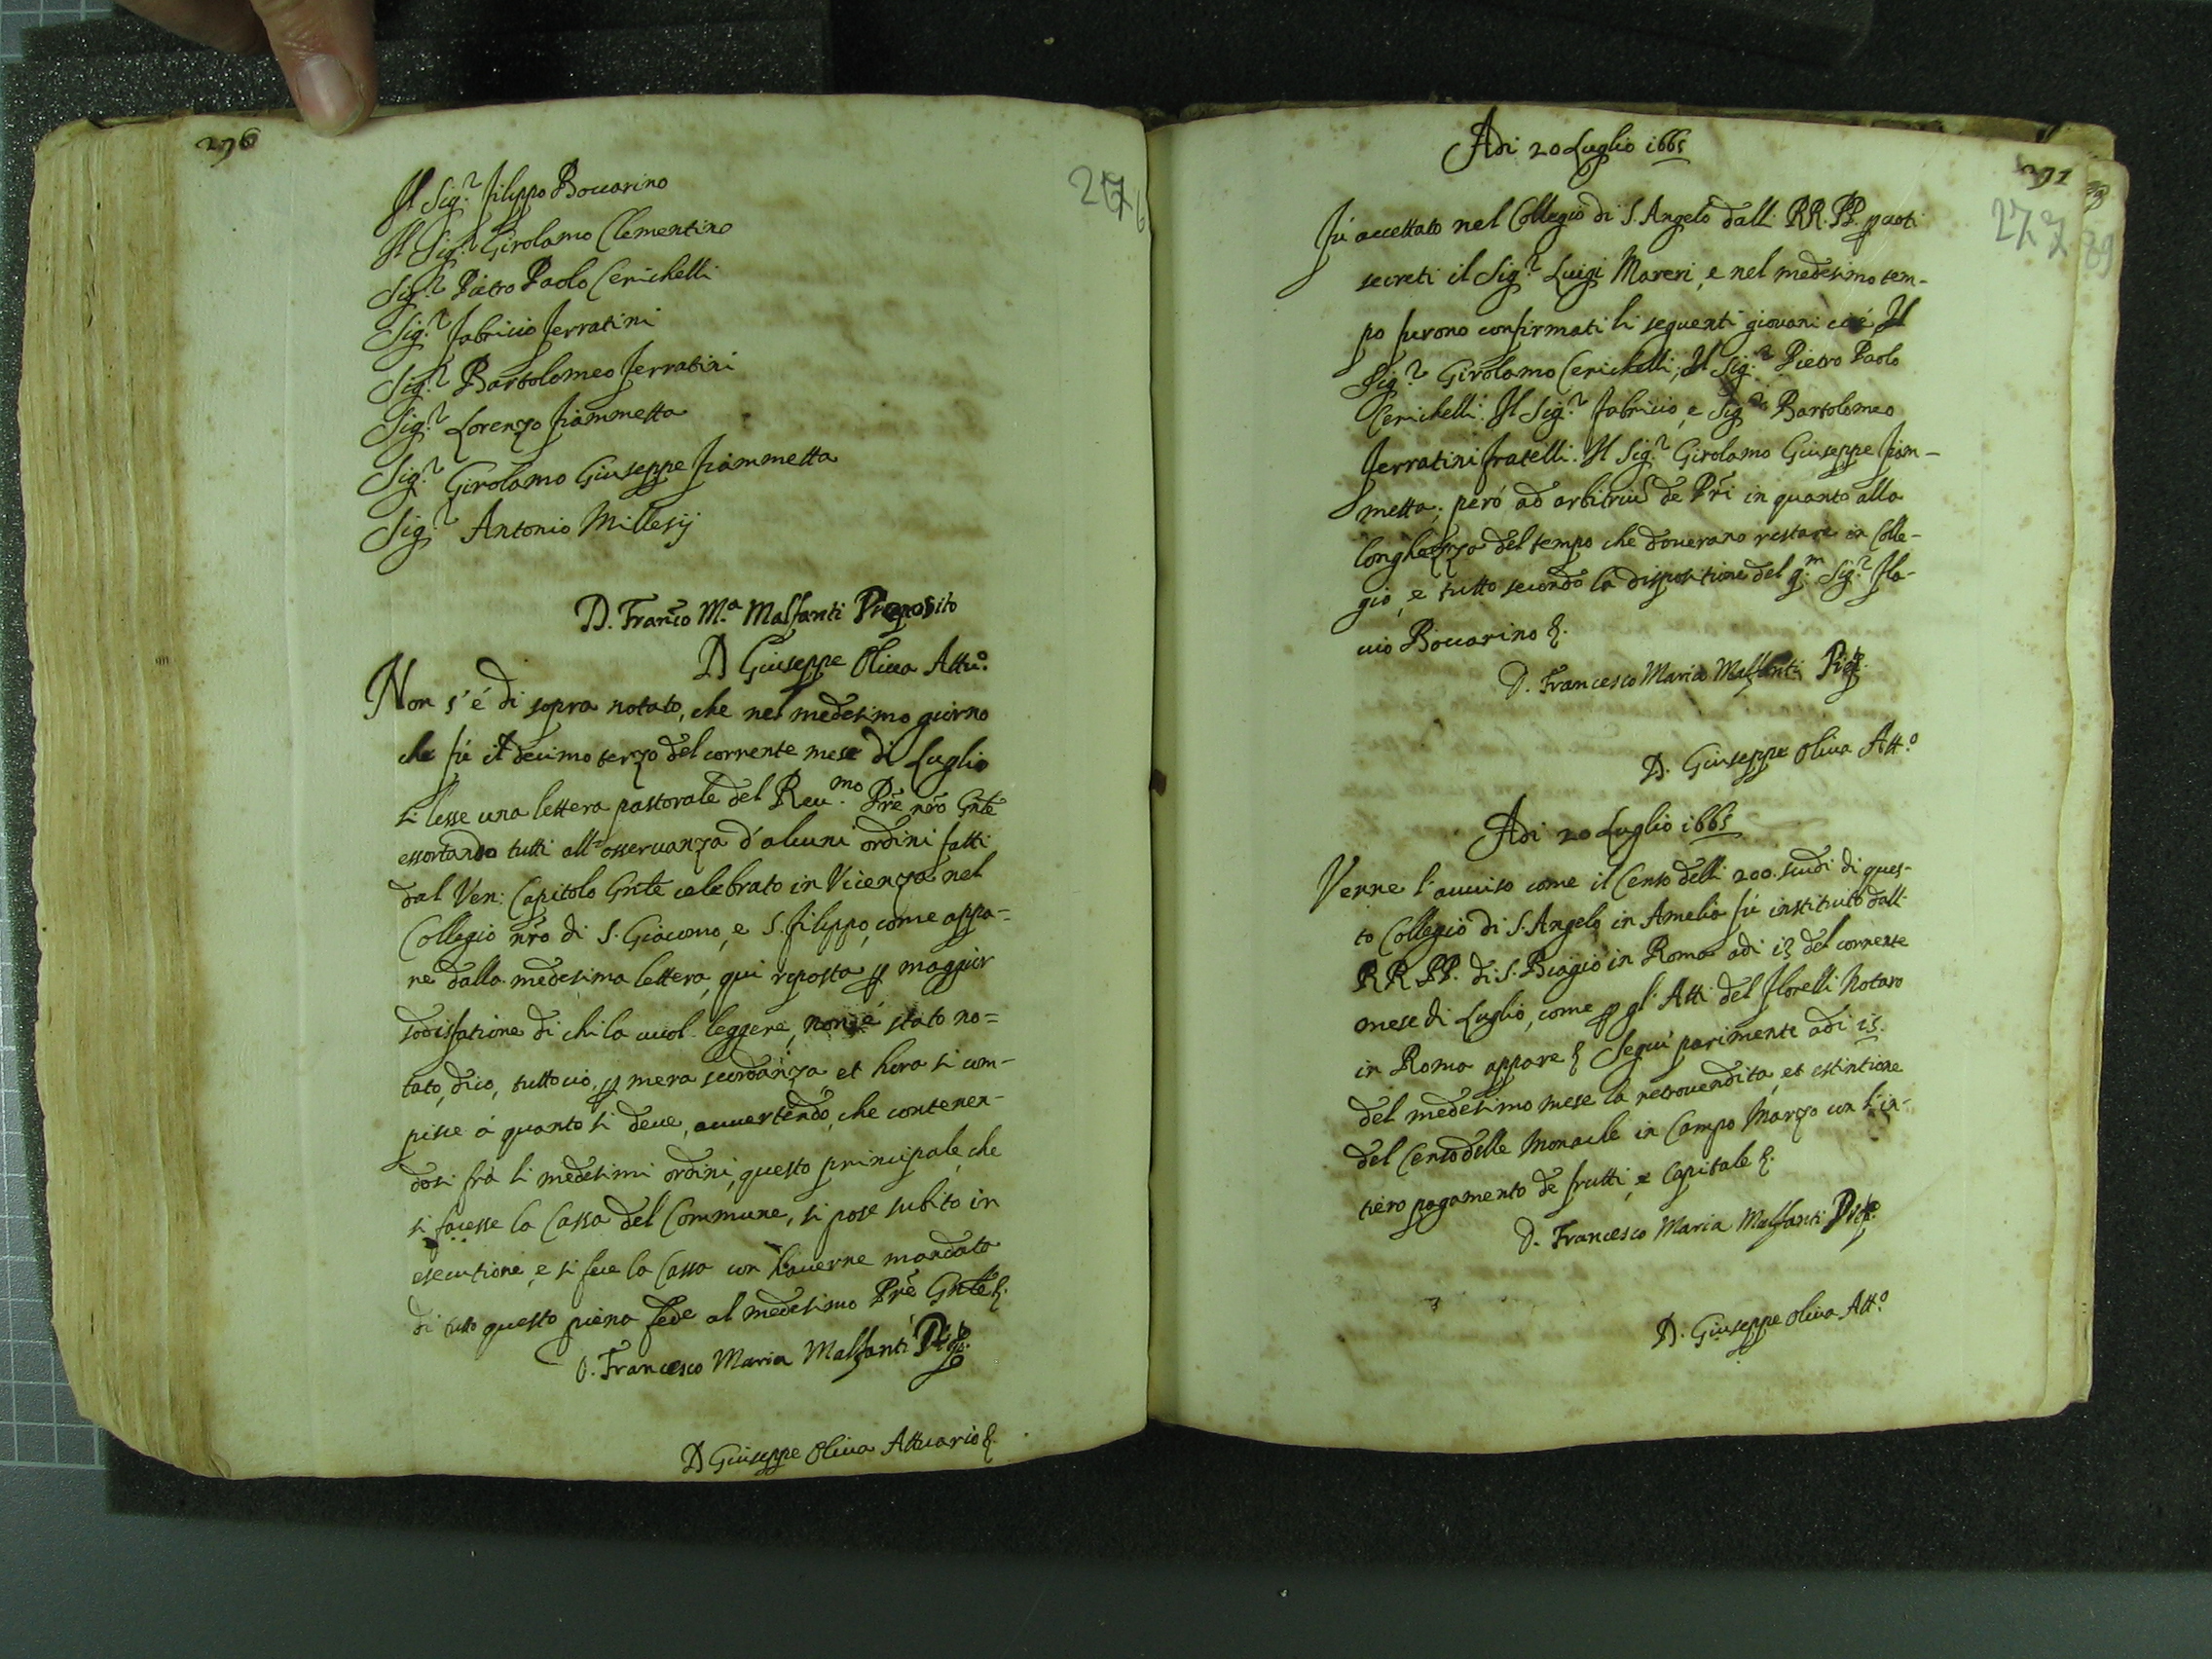 296
276
Il Sig.r Filippo Boccarino
Il Sig.r Girolamo Clementino
Sig.r Pietro Paolo Cerichelli
Sig.r Fabricio Ferratini
Sig.r Bartolomeo Ferratini
Sig.r Lorenzo Fiammetta
Sig.r Girolamo Giuseppe Fiammetta
Sig.r Antonio Millesij
D. Franco M.a Malfanti Preposito
D Giuseppe Oliva Attu.o
Non s'é di sopra notato, che nel medesimo giorno
che fú il decimo terzo del corrente mese di Luglio
si lesse una lettera pastorale del Reu.mo Pre nro Gnle
essortando tutti all'osseruanza d'alcuni ordini fatti
dal Ven: Capitolo Gnle celebrato in Vicenza nel
Collegio nro di S. Giacomo, e S. Filippo, come appa=
re dalla medesima lettera, qui reposta p maggior
sodisfatione di chi la uuol leggere, non é stato no=
tato, dico, tutto ció, p mera scordanza et hora si com-
pisce á quanto si deue, auuertendo, che contenen-
dosi frà li medesimi ordini, questo principale, che
si facesse la Cassa del Commune, si pose subito in
esecutione, e si fece la Cassa con hauerne mandato
di tutto questo piena fede al medesimo Pre Gnle &.
D. Francesco Maria Malfanti Prep.to
D Giuseppe Oliua Attuario &.
297
277
89
Adi 20 Luglio 1665
Fú accettato nel Collegio di S. Angelo dalli RR. PP. p uoti
secreti il Sig.r Luigi Mareri, e nel medesimo tem-
po furono confirmati li seguenti giouani cioé Il
Sig.r Girolamo Cerichelli; Il Sig.r Pietro Paolo
Cerichelli. Il Sig.r Fabricio, e Sig.r Bartolomeo
Ferratini fratelli. Il Sig.r Girolamo Giuseppe Fiam-
metta; peró ad arbitriũ de Pri in quanto alla
longhezza del tempo che douerano restare in Colle-
gio, e tutto secondo la dispositione del q.m Sig.r Fla-
uio Boccarino &.
D. Francesco Maria Malfanti Prep.to
D. Giuseppe Oliua Att.o
Adi 20 Luglio 1665
Venne l'auuiso come il Censo delli 200. scudi di ques-
to Collegio di S. Angelo in Amelia fú instituito dalli
RR. PP. di S. Biagio in Roma adi 13 del corrente
mese di Luglio, come p gl'Atti del Florelli Notaro
in Roma appare & Seguí parimente adi 15.
del medesimo mese la retrouendita, et estintione
del Censo delle Monache in Campo Marzo con l'in-
tiero pagamento de frutti, e Capitale &.
D. Francesco Maria Malfanti Prep.to
D. Giuseppe Oliua Att.o